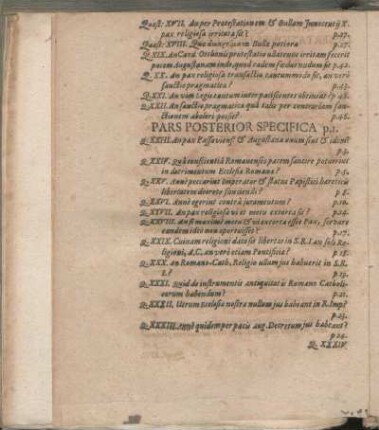 Quæst: XVII. An per Protestationem & Bullam Innocentij X.
pax religiosa irritata sit? p.27.
Quæst: XVIII. Quæ Bulla potiora p.17.
Q. XIX. An Card. Othonis protestatio ullatenus irritam fecerit
pacem Augustanam indeque ad eadem fœdus nudum sit p.42.
Q. XX. An pax religiosa transactio tantummodo sit, an verò
sanctio pragmatica? p.43.
Q. XXI. An vim Legis tantum inter paciscentes obtineat? p.46.
Q. XXII. An sanctio pragmatica quâ talis per contrariam san-
ctionem aboleri possit? p.48.
PARS POSTERIOR SPECIFICA p.1.
Q. XXIII. An pax Passaviensis & Augustana unum sint & idem?
p.4.
Q. XXIV. Quâ conscientiâ Romanenses pacem sancire potuerint
in detrimentum Ecclesiæ Romanæ? p.5.
Q. XXV. Anne peccarint Imperator & status Papistici hæreticis
libertatem decreto sanciendi? p.6.
Q. XXVI. Anne egerint contrà juramentum? p.10.
Q. XXVII. An pax religiosa vi et metu extorta sit? p.14.
Q. XXVIII. An si maximè metu & vi extorta esset Pax, servare
eandem ideò non oportuisset? p.17.
Q. XXIX. Cuinam religioni data sit libertas in S.R.I. an soli Re-
ligioni, A.C, an verò etiam Pontificiæ? p.18.
Q. XXX. an Romano-Cath. Religio ullum jus habuerit in S.R.
I.? p.19.
Q. XXXI. Quid de instrumentis antiquitatis Romano Catholi-
corum habendum? p.21.
Q. XXXII. Utrum Ecclesiæ nostræ nullum jus habeant in R. Imp?
p.23.
Q. XXXIII. Anne quidem per pacis Aug. Decretum jus habeant?
p.24.
Q. XXXIV.